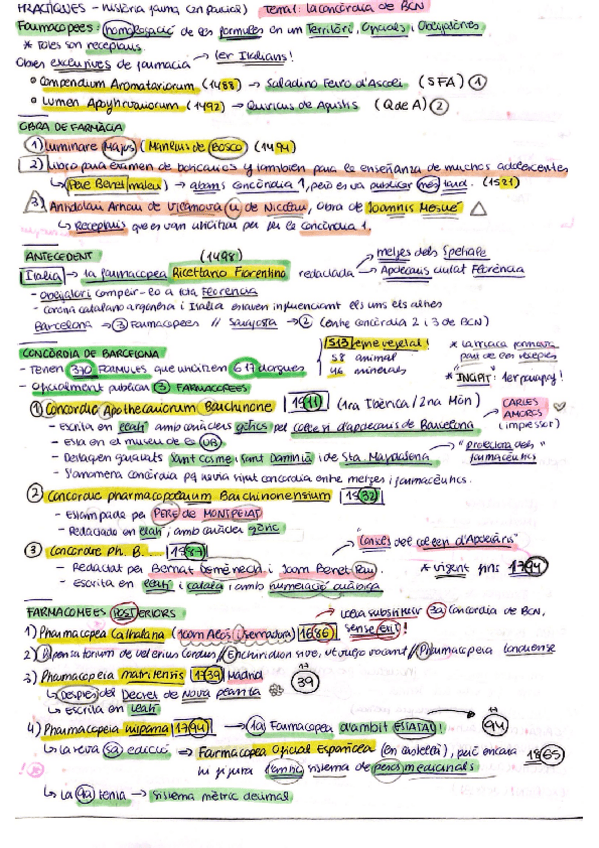 PRÀCTIQUES - Història farma (2n parcial) Tema 1: La concòrdia de BCN
Farmacopees: homologació de les fórmules en un Territòri, Oficials i Obligatòries
* Totes son receptaris.
Obres exclusives de farmàcia → 1er Italians!
Compendium Aromatariorum (1488) → Saladino Ferro d'Ascoli (SFA) ①
Lumen Apothecariorum (1492) → Quiricus de Agustis (Q de A) ②
OBRA DE FARMÀCIA
1) Luminare Majus (Manlius de Bosco) (1494)
2) Libro para examen de boticarios y también para la enseñanza de muchos adolescentes
↳ Pere Benet mateu → abans concòrdia 1, però es va publicar més tard. (1521)
3) Antidotari Arnau de Vilanova u de Nicolau, Obra de Ioannis Mesué △
↳ Receptaris que es van utilitzar per fer la concòrdia 1.
ANTECEDENT (1498)
Italia → 1a farmacopea Ricettario Fiorentino redactada
→ metjes dels
→ Apotecaris ciutat Florència
- Obligatori complir-lo a tota Florencia
- Corona catalano aragonesa i Italia estaven influenciant els uns els altres
Barcelona → ③ Farmacopees // Saragossa → ② (entre concòrdia 2 i 3 de BCN)
CONCÒRDIA DE BARCELONA
- Tenen 370 FORMULES que utilitzen 617 drogues
513 d'eme vegetal!
58 animal
46 minerals
* La triaca formava part de les receptes
* "INCIPIT": 1er paragraf!
- Oficialment publicar ③ FARMACOPEES
① Concordie Apothecariorum Barchinone 1511 (1ra Ibèrica / 2na Món)
→ CARLES AMOROS (impressor)
- Escrita en llatí amb caràcters gòtics pel col·legi d'apotecaris de Barcelona
- Esta en el museu de la UB
- Destaquen gravats Sant Cosme i Sant Damià i de Sta. Magdalena
→ "protectora dels" farmacèutics
- S'anomena concòrdia pq havia sigut concordia entre metges i farmacèutics.
② Concordie pharmacopolarum Barchinonensium 1535
- Estampada per PERE de MONTPEZAT
- Redactada en llatí i amb caràcter gòtic
③ Concordie Ph. B..... 1587
→ "Consols del col·legi d'Apotecaris"
- Redactat per Bernat Domènech i Joan Benet Pau.
* vigent fins 1794
- Escrita en llatí i català i amb numeració aràbiga
FARMACOPEES POSTERIORS
→ Volia substituir 3a Concordia de BCN, sense exit!
1) Pharmacopea Cathalana (Joan Alòs i Serradora) 1686
2) Dispensatorium de Valerius Cordus / Enchiridion sive, ut vulgo vocant / Pharmacopeia londiense
3) Pharmacopeia matritensis 1739 Madrid
39
↳ Després del Decret de Nova planta
↳ Escrita en llatí
4) Pharmacopeia hispana 1794 → 1a Farmacopea d'ambit ESTATAL!
94
↳ La seva 5a edició ⇒ Farmacopea Oficial Española (en castellà), però encara hi figura l'antic sistema de pesos medicinals
1865
↳ La 9a tenia → sistema mètric decimal